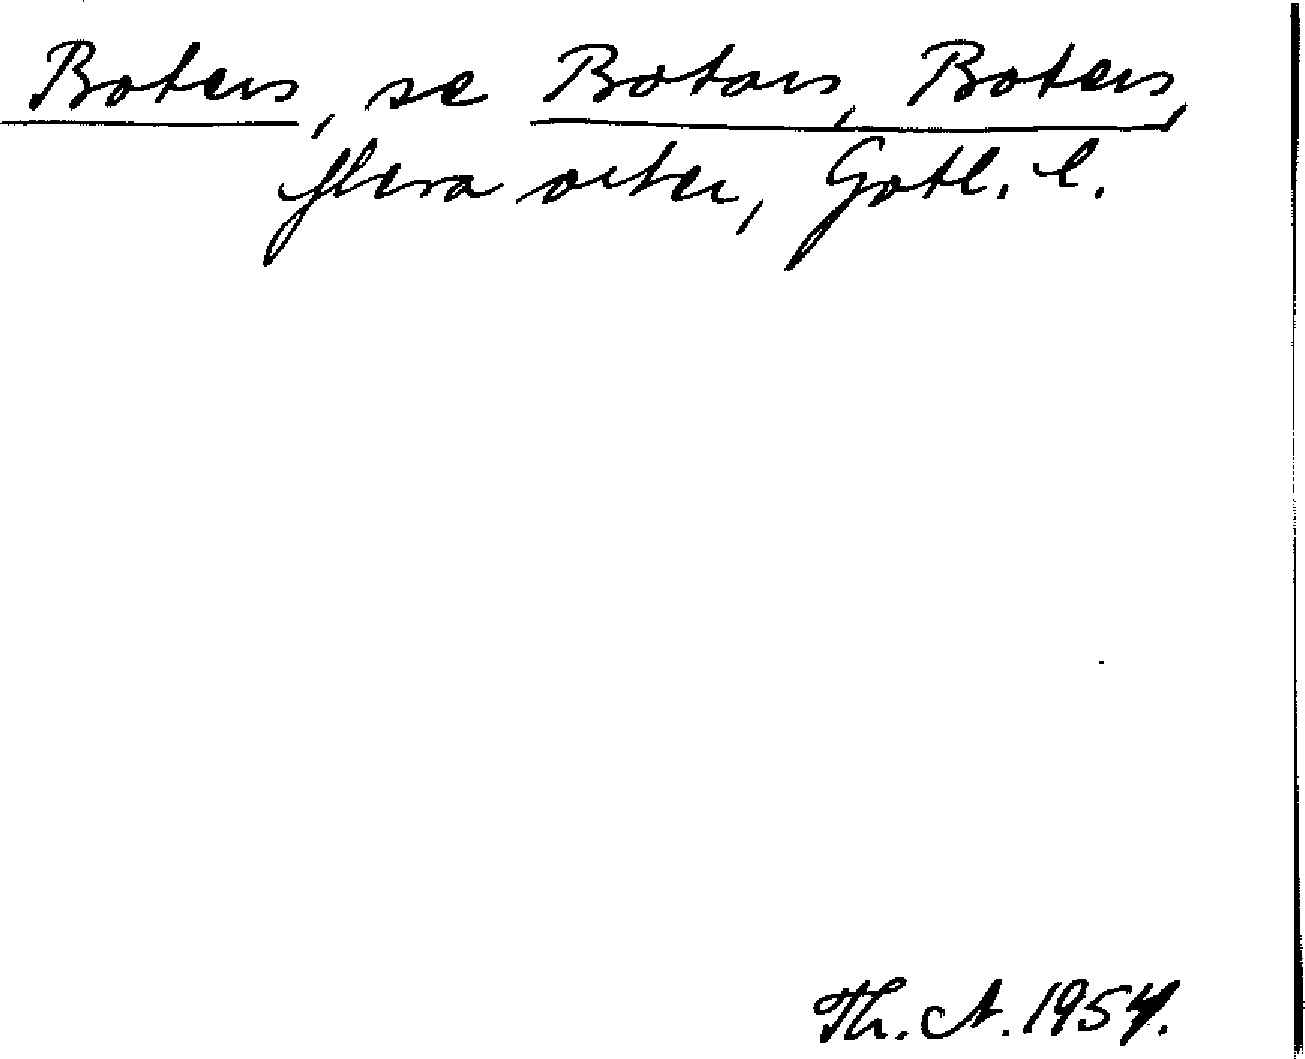 Boters, se Botars, Boters,
flera orter, Gotl. l.
Th. A. 1954.